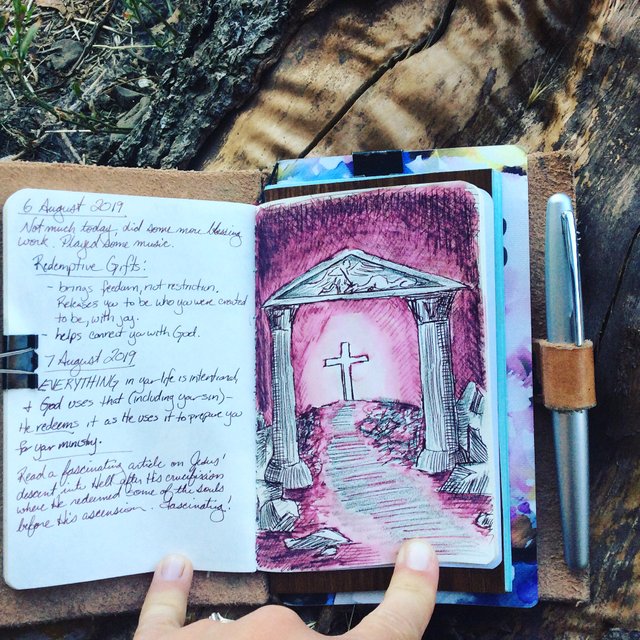 6 August 2019
Not much today. did some more blessing
work. Played some music.
Redemptive Gifts:
- brings freedom, not restriction.
Releases you to be who you were created
to be, with joy.
- helps connect you with God.
7 August 2019
EVERYTHING in your life is intentional,
& God uses that (including your sin) -
He redeems it as He uses it to prepare you
for your ministry.
Read a fascinating article on Jesus'
descent into Hell after His crucifixion
where He redeemed some of the souls
before His ascension. Fascinating!